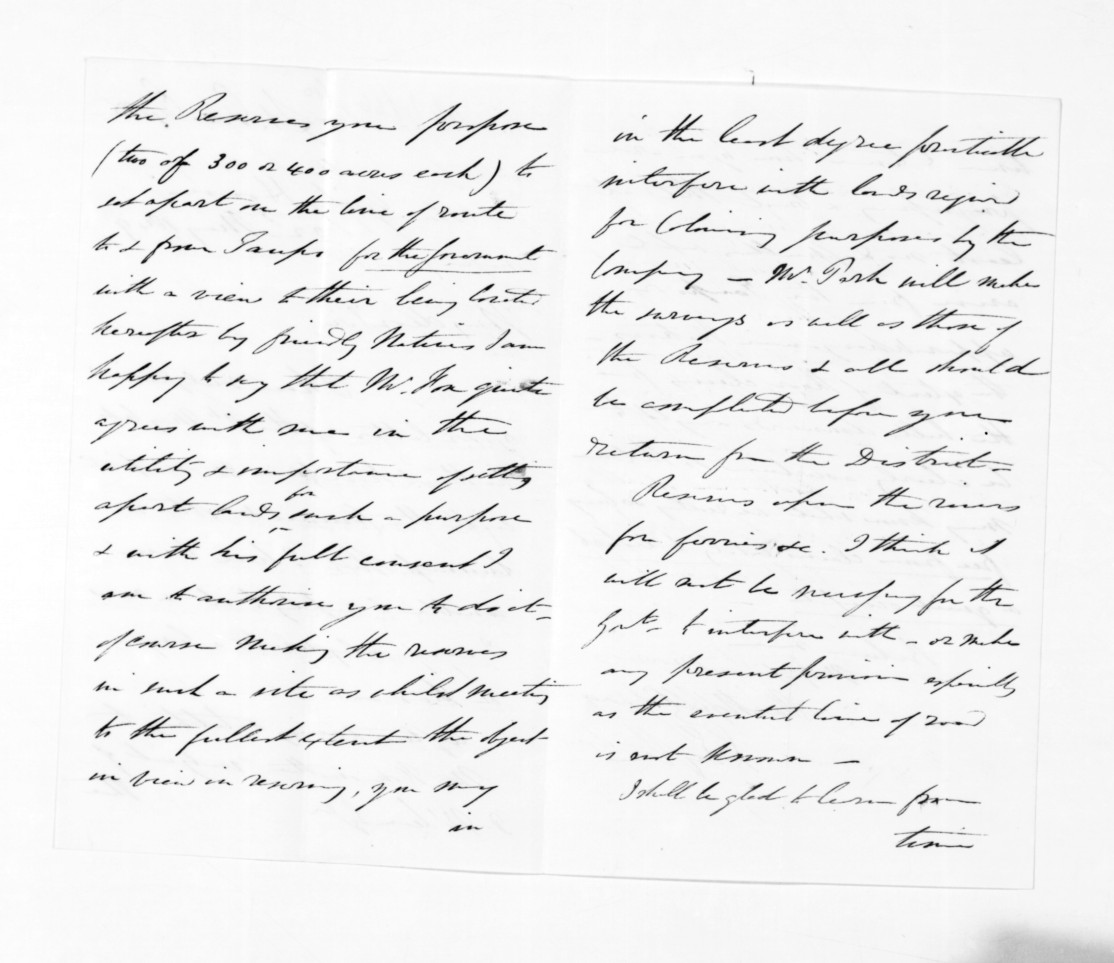 the Reserves you propose
(two of 300 or 400 acres each) to
set apart on the line of route
to & from Taupo for the Government
with a view to their being locatd.
hereafter by friendly Natives I am
happy to say that Mr. Fox quite
agrees with me in the
utility & importance of setting
apart lands for such a purpose
& with his full consent I
am to authorise you to do it -
of course making the reserves
in such a site as whilst meeting
to the fullest extent the object
in view in reserving, you may
in
in the least degree practicable
interfere with lands reqired
for Coloning purposes by the
Company - Mr. Park will make
the surveys as well as those of
the Reserves & all should
be completed before you
return from the District -
Reserves upon the rivers
for ferries &c. I think it
will not be necessary for the
Govt. to interfere with - or make
any present provision especially
as the eventual line of road
is not known -
I shall be glad to learn from
time